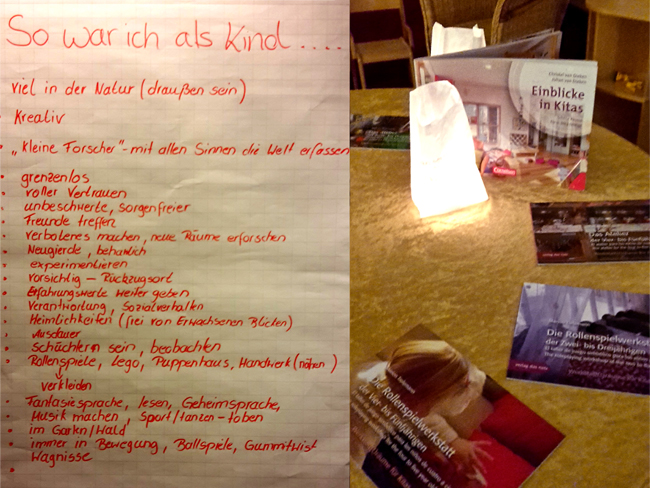 So war ich als Kind ....
viel in der Natur (draußen sein)
Kreativ
"kleine Forscher"- mit allen Sinnen die Welt erfassen
grenzenlos
voller Vertrauen
unbeschwerte, sorgenfreier
Freunde treffen
Verbotenes machen, neue Räume erforschen
Neugierde, beharrlich
experimentieren
vorsichtig – Rückzugsort
Erfahrungswerte weiter geben
Verantwortung, Sozialverhalten
Heimlichkeiten (frei von Erwachsenen Blicken)
Ausdauer
schüchtern sein, beobachten
Rollenspiele, Lego, Puppenhaus, Handwerk (nähen)
verkleiden
Fantasiesprache, lesen, Geheimsprache,
Musik machen, Sport/tanzen - toben
im Garten/Wald
immer in Bewegung, Ballspiele, Gummitwist
Wagnisse
Einblicke
in Kitas
Cornelsen
Das Atelier
der Vier- bis Fünfjährigen
Die Rollenspielwerkstatt
der Zwei- bis Dreijährigen
Die Rollenspielwerkstatt
der Vier- bis Fünfjährigen